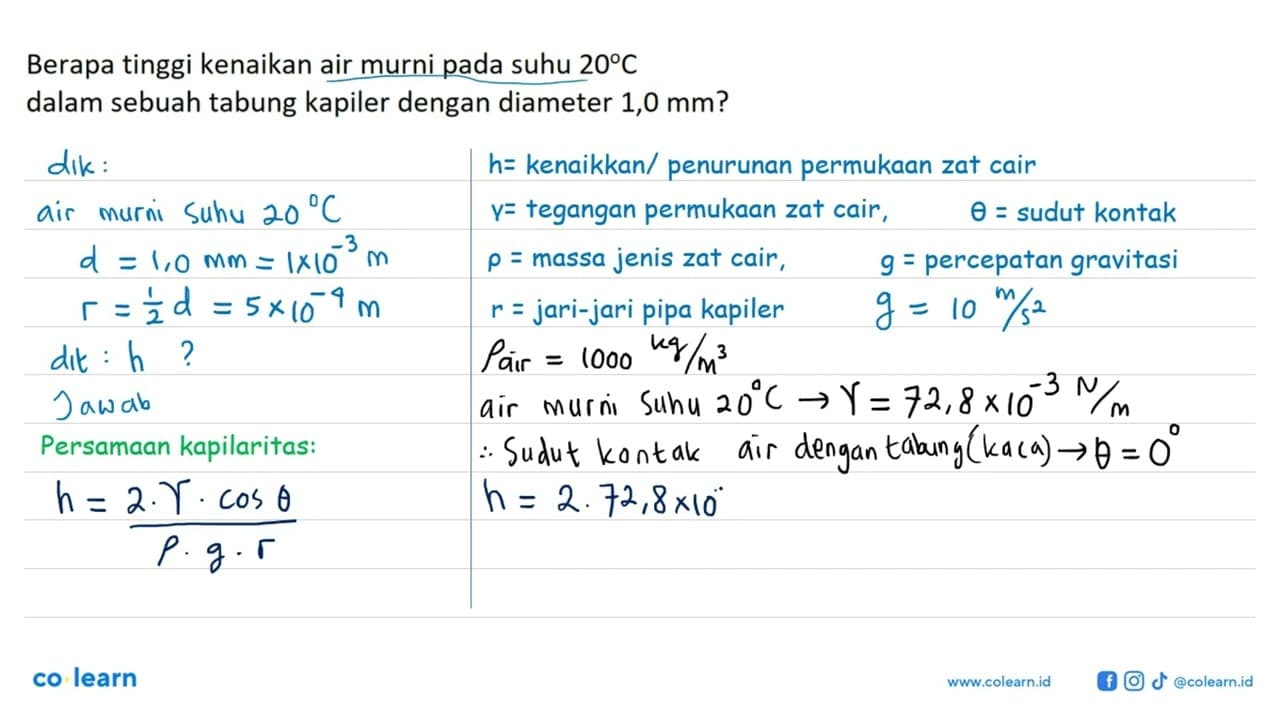 Berapa tinggi kenaikan air murni pada suhu 20°C
dalam sebuah tabung kapiler dengan diameter 1,0 mm?
dik:
air murni suhu 20 °C
d = 1,0 mm = 1×10⁻³ m
r = ½ d = 5×10⁻⁴ m
dit : h ?
Jawab
Persamaan kapilaritas:
h = 2.γ. cos θ
ρ. g. r
h= kenaikkan/ penurunan permukaan zat cair
γ= tegangan permukaan zat cair, θ = sudut kontak
ρ = massa jenis zat cair, g = percepatan gravitasi
r = jari-jari pipa kapiler g = 10 m/s²
ρair = 1000 kg/m³
air murni suhu 20°C → γ = 72,8×10⁻³ N/m
∴ Sudut kontak air dengan tabung (kaca) → θ = 0°
h = 2. 72,8×10
co·learn
www.colearn.id
@colearn.id